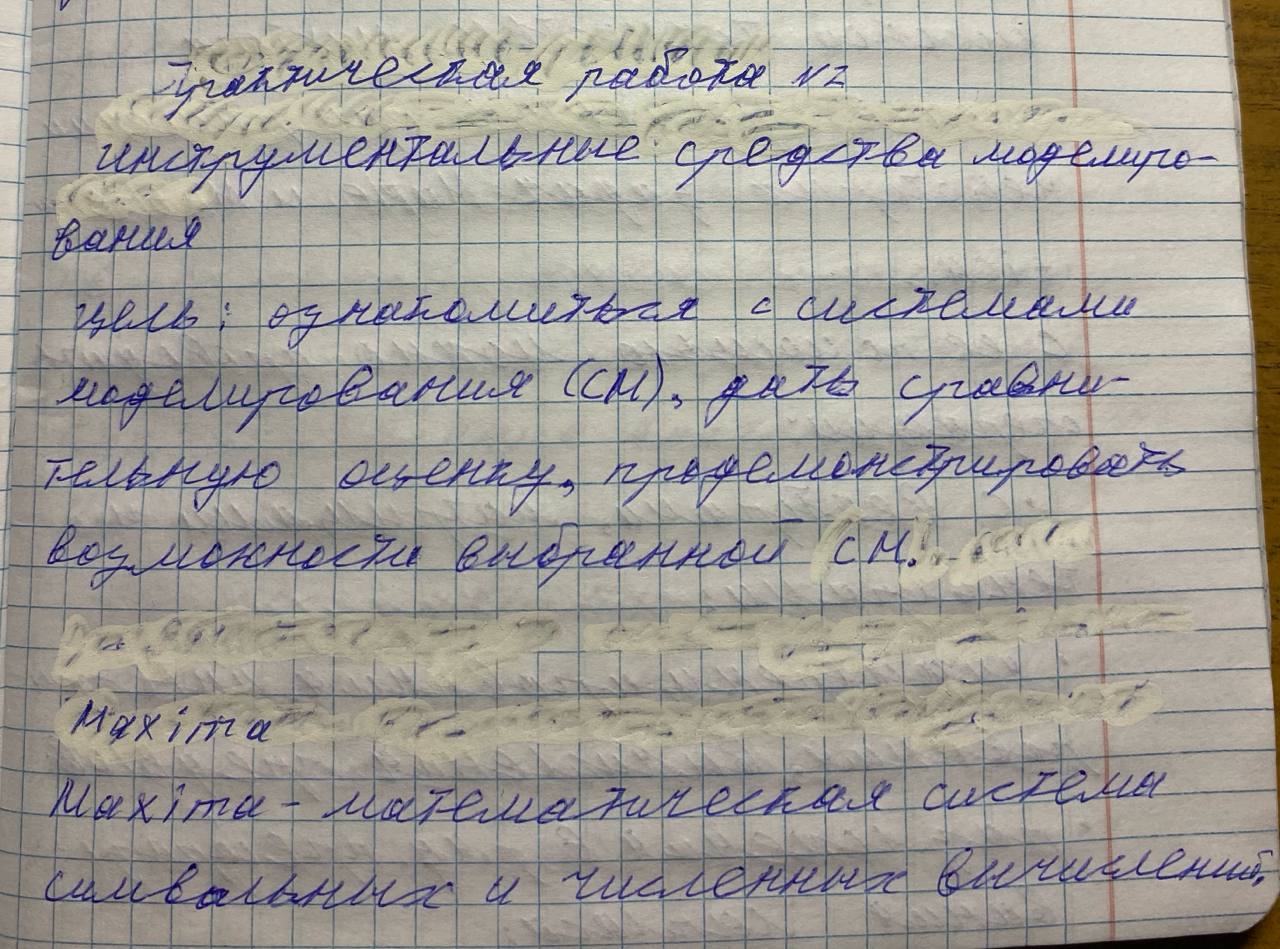 Практическая работа №2
инструментальные средства моделиро-
вания
цель: ознакомиться с системами
моделирования (СМ), дать сравни-
тельную оценку, продемонстрировать
возможности выбранной (СМ).
Maxima
Maxima - математическая система
символьных и численных вычислений,